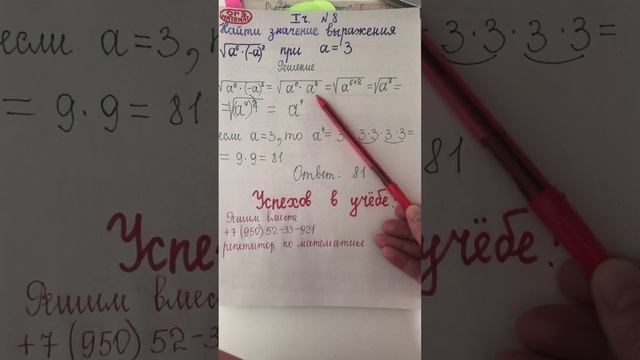 ОГЭ
МАТЕМАТ
I ч. №8
Найти значение выражения
√a⁶·(-a)² при a=3
Решение
√a⁶·(-a)² = √a⁶·a² = √a⁶⁺² = √a⁸ =
= √(a⁴)² = a⁴
если a=3, то a⁴ = 3·3·3·3 =
= 9·9 = 81
Ответ: 81
Успехов в учёбе!
Решим вместе
+7 (950) 52-33-921
репетитор по математике